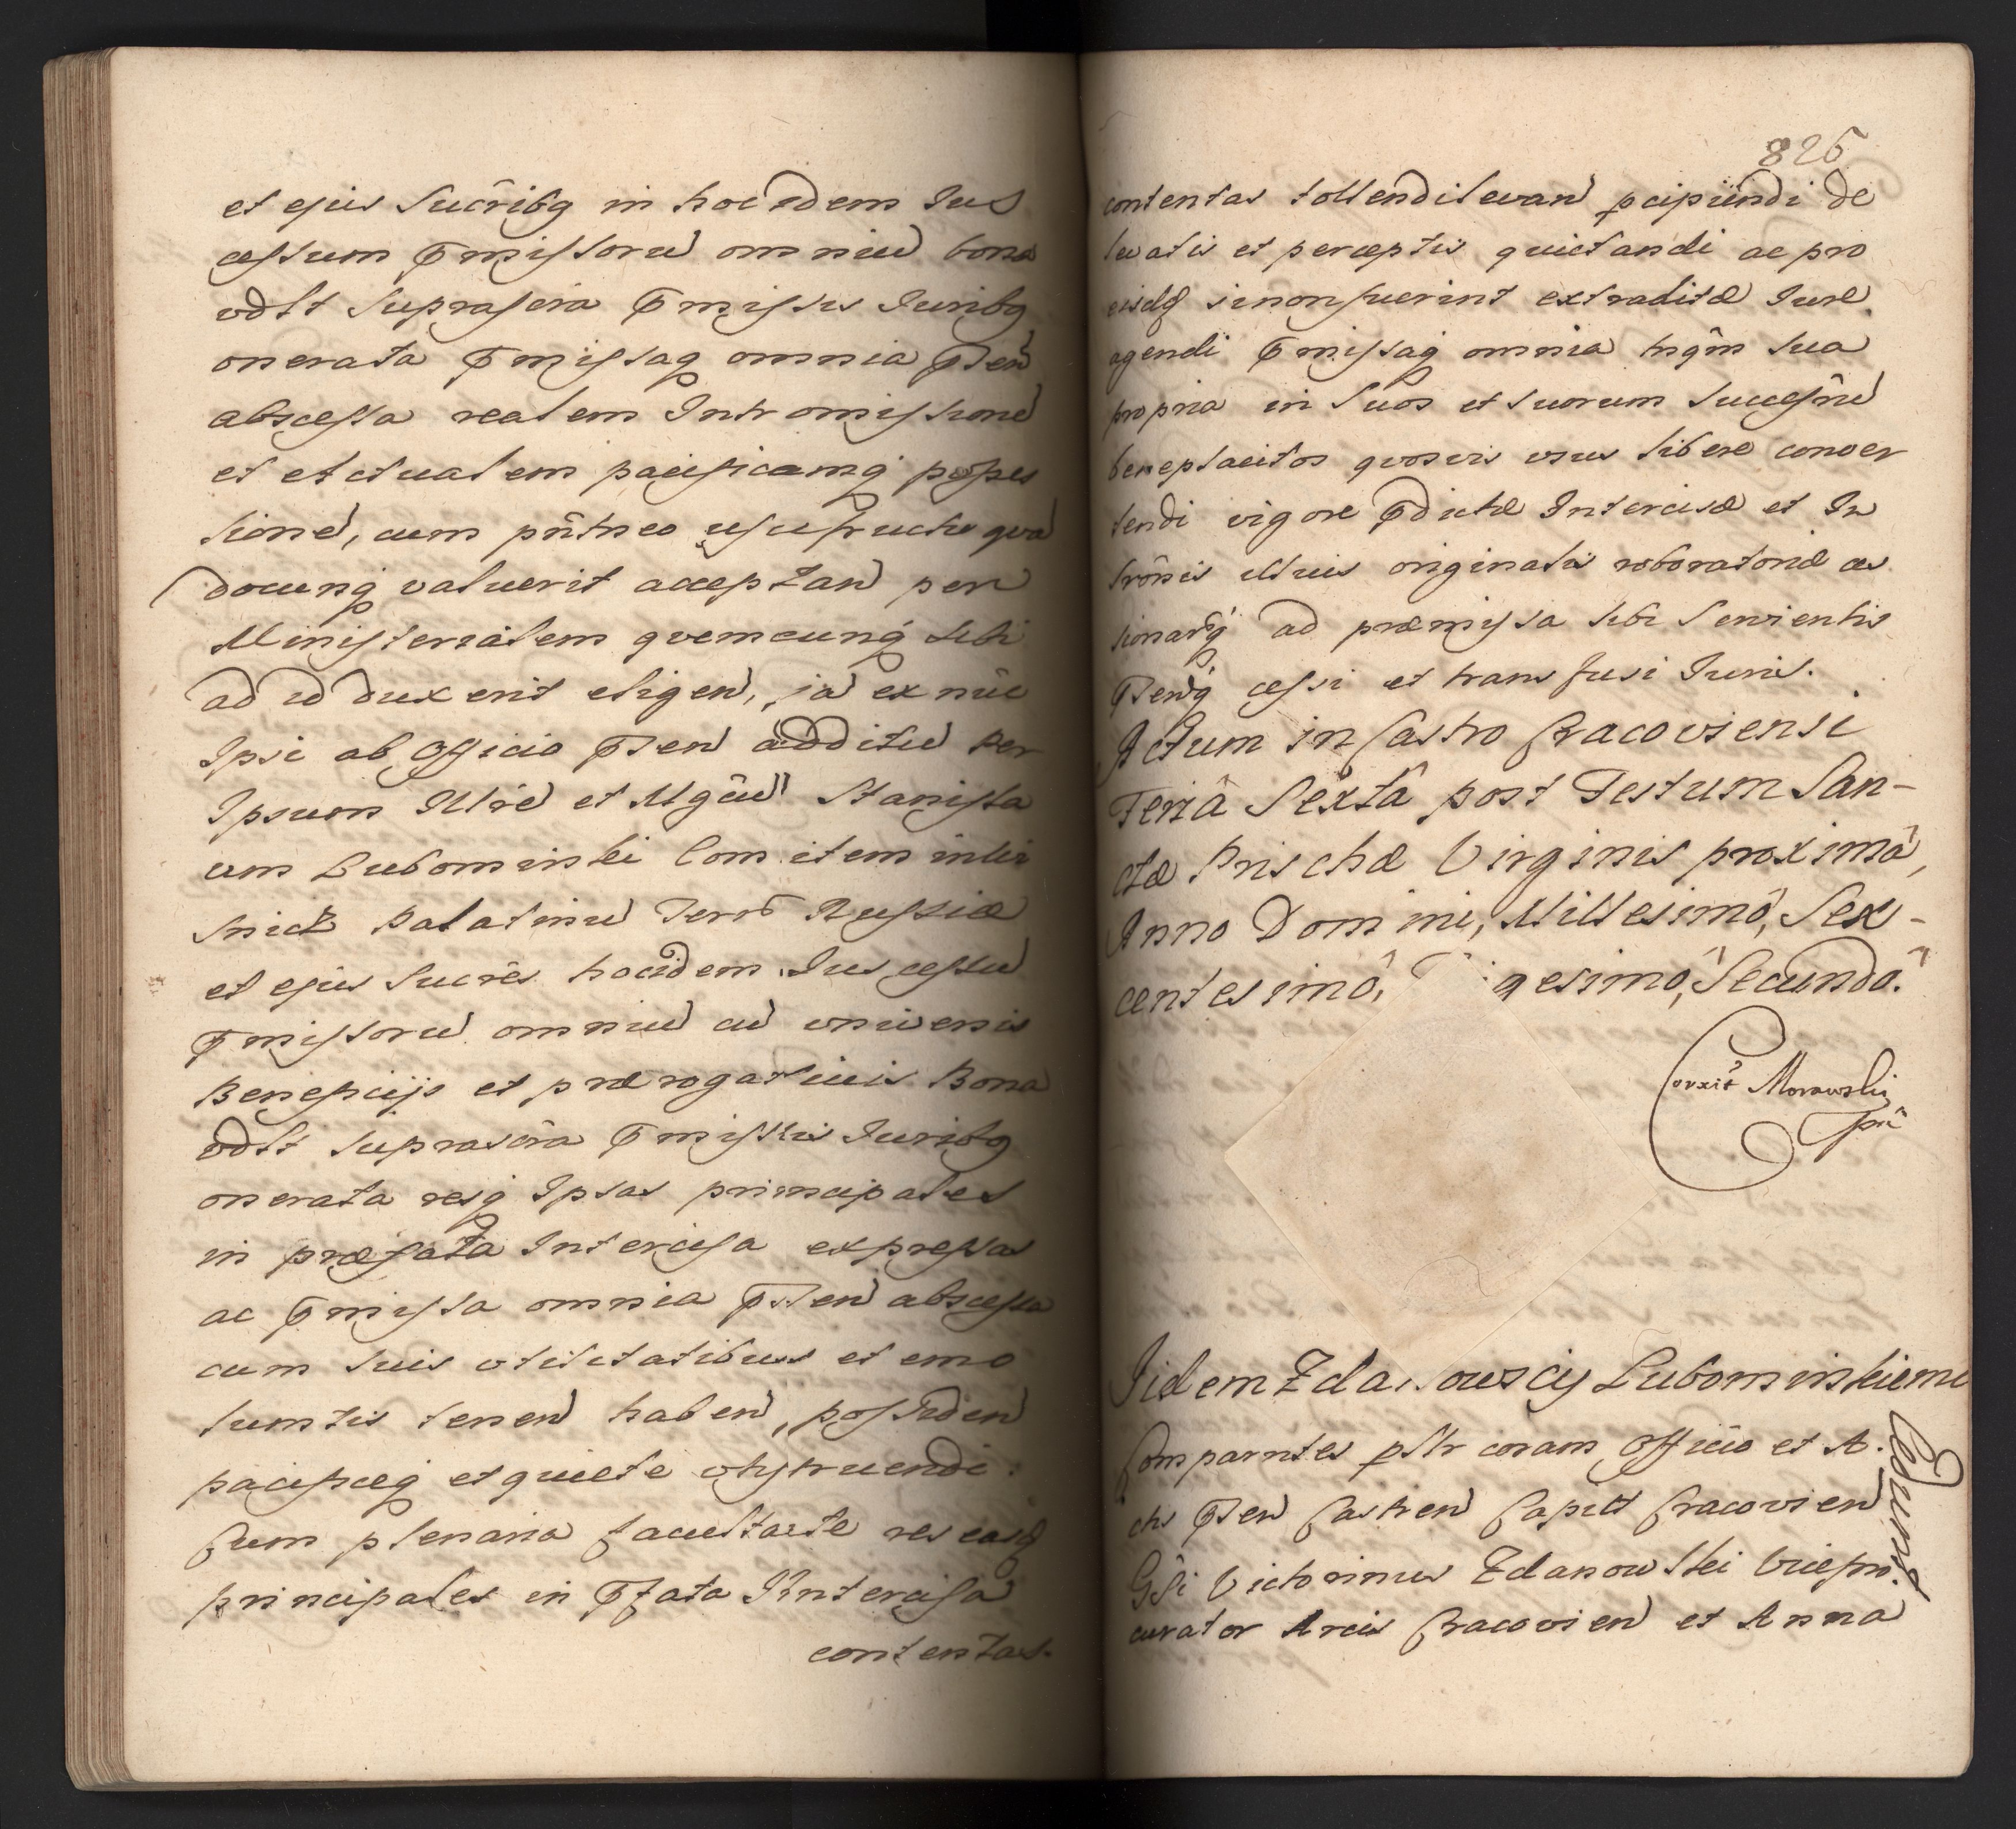 et ejus Sucrībq in hoc idem Jus
cessum p̄missorū omniū bona
vdlt suprascra p̄missis Juribq
onerata p̄missaq omnia p̄sen
abscessa realem Intromissionē
et actualem pacificamq posses
sionē, cum p̄ntneo usufructu qvā
docunq valuerit acceptan per
Ministerialem qvemcunq sibi
ad id duxerit eligen, ja ex nūc
Ipsi ab Officio p̄sen additū per
Ipsum Illrē et Mgcū Stanisla
um Lubominski Comitem in Wi
snicz Palatinū Terrō Russiæ
et ejus Sucrēs hocidem Jus cessū
p̄missorū omniū cū universis
Beneficijs et prærogativis Bona
vdlt suprascra p̄missis Juribq
onerata resq Ipsas principales
in præfata Intercisa expressas
ac p̄missa omnia p̄sen abscessa
cum suis utilitatibus et emo
lumtis tenen haben, possiden
pacificeq et quiete utifruendi.
Cum plenaria facultate res easq
principales in p̄fata Intercisa
contentas.
826
contentas tollendi levan pcipiendi de
levatis et perceptis quietandi ac pro
eisdq si non fuerint extraditæ Jure
agendi p̄missaq omnia tnqm sua
propria in Suos et suorum Succesrū
beneplacitos qvosvis usus libere conver
tendi vigore p̄dictæ Intercisæ et In
srōnis illius originalis roboratoriæ ces
sionarq ad præmissa sibi Servientis
p̄senq cessi et transfusi Juris.
Actum in Castro Cracoviensi
Feriâ Sextâ post Festum San-
ctæ Prischæ Virginis proximâ,
Anno Domini, Millesimô, Sex-
centesimô, gesimô, Secundô.
Corxit Morawski
Iidem Zdanowscy Lubominskiemu
Comparntes pslr coram Officio et A.
ctis p̄sen Castren Capitt Cracovien
Gsi Victorinus Zdanowski Vicepro.
curator Arcis Cracovien et Anna
Cedunt